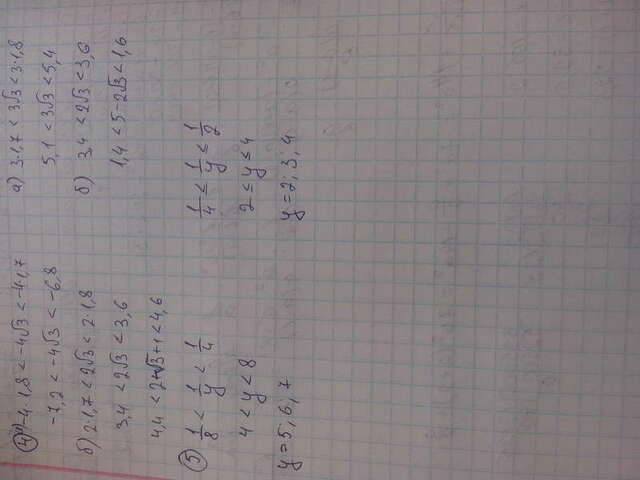 ④ -4·1,8 < -4√3 < -4·1,7
-7,2 < -4√3 < -6,8
б) 2·1,7 < 2√3 < 2·1,8
3,4 < 2√3 < 3,6
4,4 < 2√3+1 < 4,6
⑤ 1/8 < 1/y < 1/4
4 < y < 8
y = 5; 6; 7
а) 3·1,7 < 3√3 < 3·1,8
5,1 < 3√3 < 5,4
б) 3,4 < 2√3 < 3,6
1,4 < 5-2√3 < 1,6
1/4 ≤ 1/y ≤ 1/2
2 ≤ y ≤ 4
y = 2; 3; 4